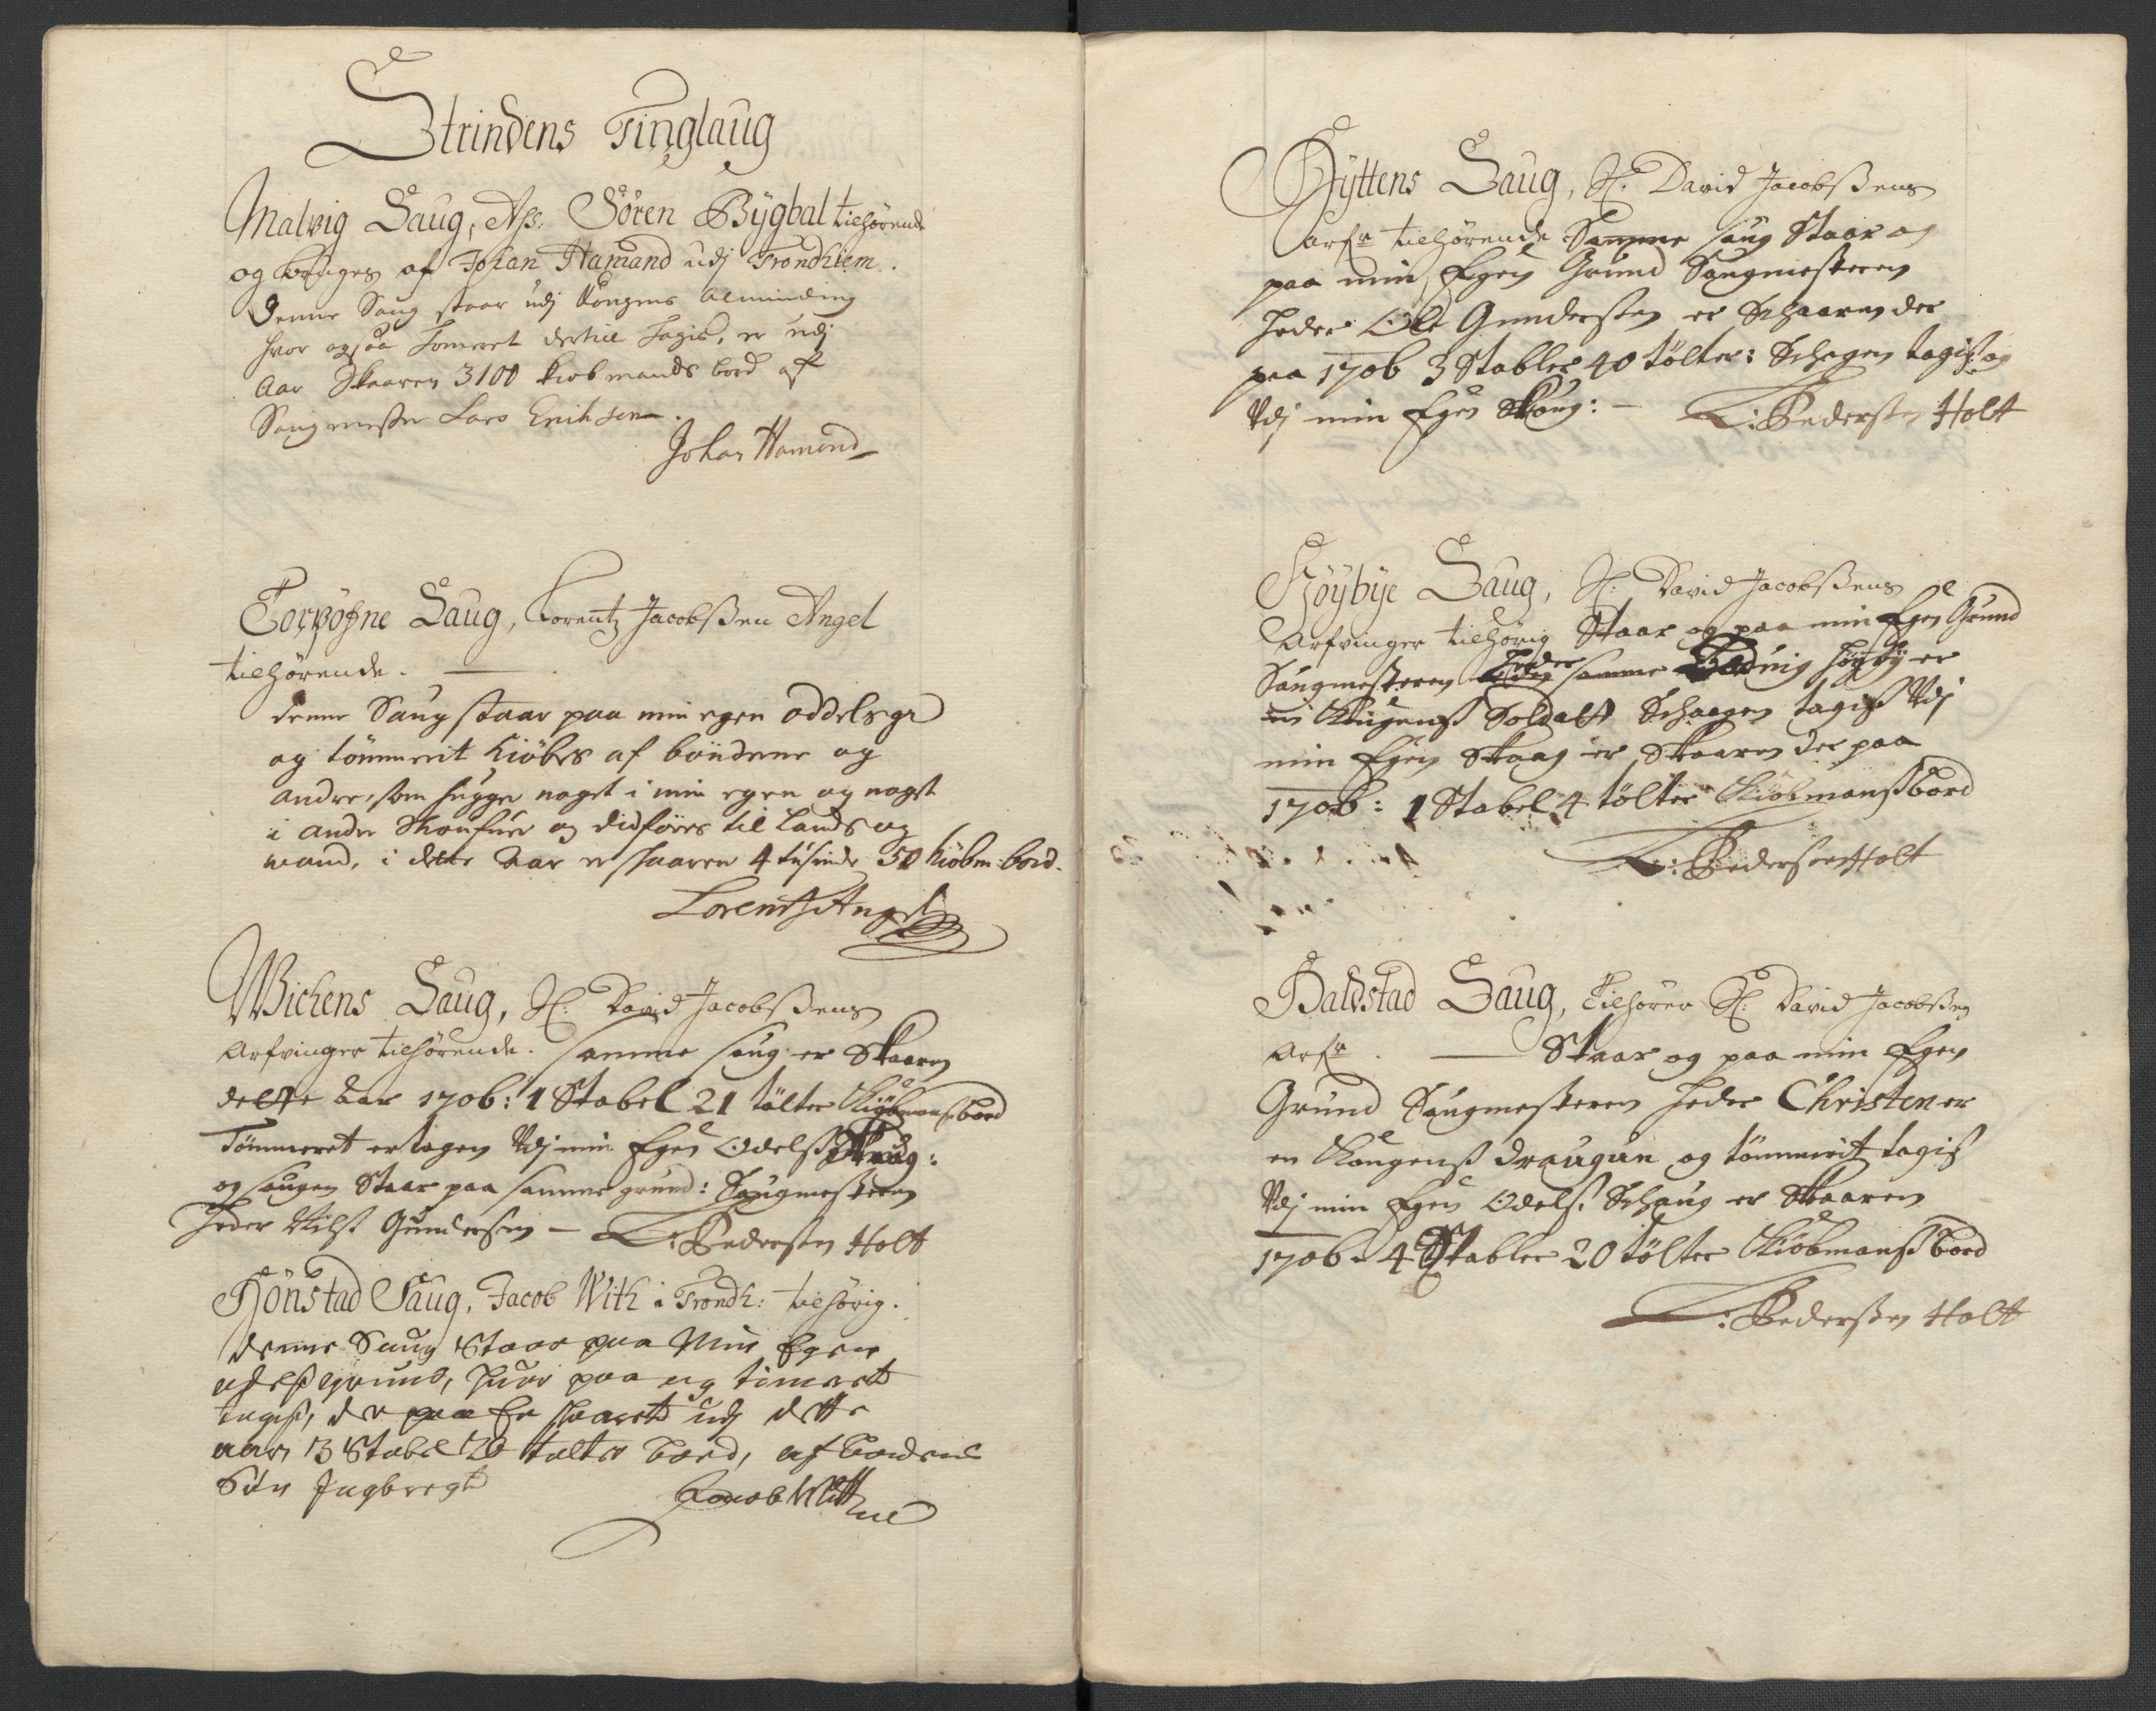 Strindens Tinglaug
Malvig Saug, Ass: Sören Bÿgbal tilhörende
og bruges af Johan Hamand udj Trondhiem.
Denne Saug staar udj Kongens Alminding
hvor ogsaa Tomeret dertil Tagis, er udj
Aar Skaaren 3100 kiobmands bord af
Saugmester Lars Erichsen.
Johan Hamond
Torpöfne Saug, Lorentz Jacobssen Angel
tilhörende.
denne Saug staar paa min egen oddels gr
og tömmerit kiöbes af bönderne og
andre, som hugger noget i min egen og noget
i andre Skoufuer og didföres til Lands og
vand, i dette Aar er skaaren 4 tusinde 50 kiöbm: bord.
Lorentz Angel
Wichens Saug, Sl: David Jacobssens
Arfvinger tilhörende. samme saug er Skaaren
dette Aar 1706: 1 Stabel 21 tölter Kiöbmans bord
Tömmeret er tagen Udj min Egen Odelss Skaug:
og saugen Staar paa samme grund: Saugmesteren
Heder Nilss Gundersen — L: Pedersen Holt
Hönstad Saug, Jacob With i Trondh: tilhörig.
denne Saug Staar paa Min Egen
odelss grund, huor paa og timeret
tagiss, der paa Er skaaret udj dette
aar, 3 Stabel 20 tolter bord, af bondens
Sön Ingbregt
Jacob With
Hÿttens Saug, Sl: David Jacobssens
arfr tilhörende Samme saug Staar og
paa min Egen Grund Saugmesteren
heder Ole Gundersen er Schaaren der
paa 1706 3 Stabler 40 tölter: Schogen tagiss og
Udj min Egen Skoug: — L: Pedersen Holt
Höÿbÿe Saug, Sl: David Jacobssens
Arfvinger tilhörig Staar og paa min Egen Grund
Saugmesteren heder samme höÿbÿ er
en Kongenss Soldatt Schaagen tagiss Udj
min Egen Skaag er Skaaren der paa
1706: 1 Stabel 4 tölter Kiöbmanss bord
L: Pedersen Holt
Baldstad Saug, Tilhörer Sl: David Jacobssen
Arfr. — Staar og paa min Egen
Grund Saugmesteren heder Christen er
en Kongenss draugun og tömmerit tagiss
Udj min Egen Odels: Schaug er Skaaren
1706 - 4 Stabler 20 tölter Kiöbmanss bord
L: Pederssen Holt